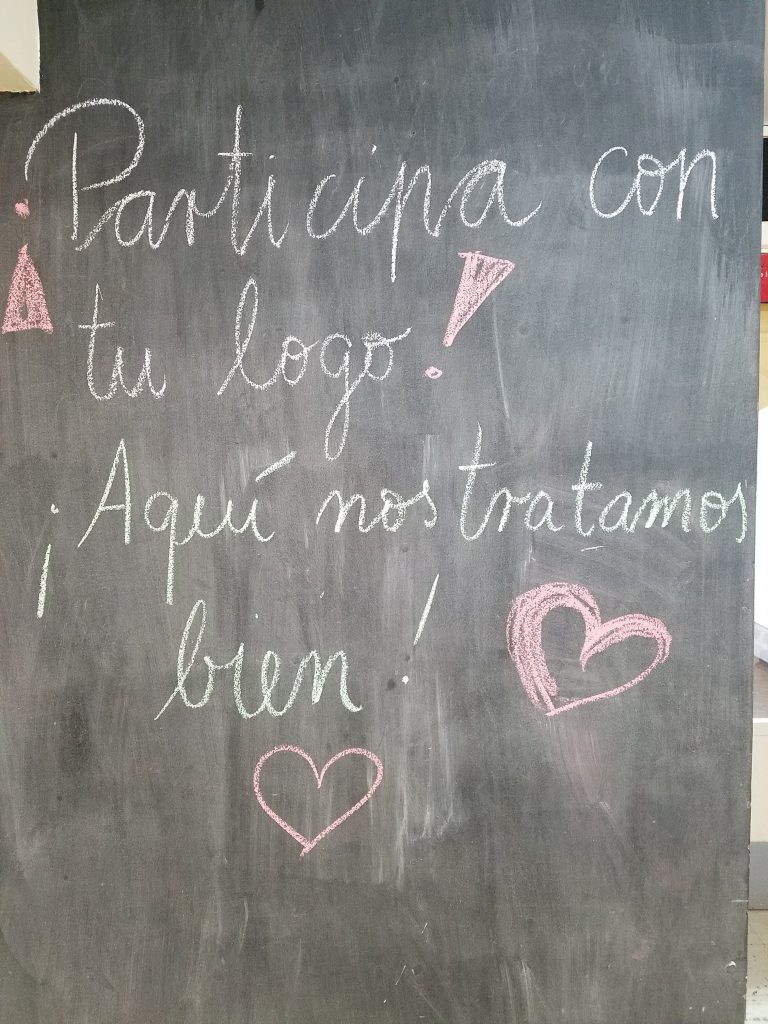 ¡Participa con
tu logo!
¡Aquí nos tratamos
bien!